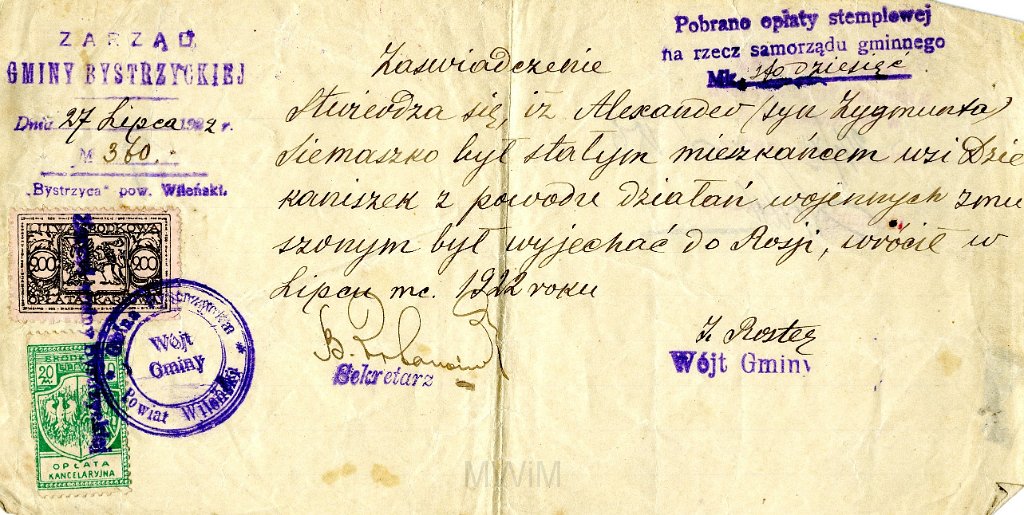 ZARZĄD
GMINY BYSTRZYCKIEJ
Dnia 27 Lipca 1922 r.
№ 360.
"Bystrzyca" pow. Wileński.
Pobrano opłaty stemplowej
na rzecz samorządu gminnego
Mk. sto dziesięć
Zaświadczenie
Stwierdza się, iż Alexander (syn Zygmunta)
Siemaszko był stałym mieszkańcem wsi Dzie
kaniszek z powodu działań wojennych zmu
szonym był wyjechać do Rosji, wrócił w
Lipcu mc. 1922 roku
Sekretarz
Wójt Gminy
LITWA ŚRODKOWA
200 200
OPŁATA
Wójt
Gminy
Powiat Wileński
20
OPŁATA
KANCELARYJNA
MWiM